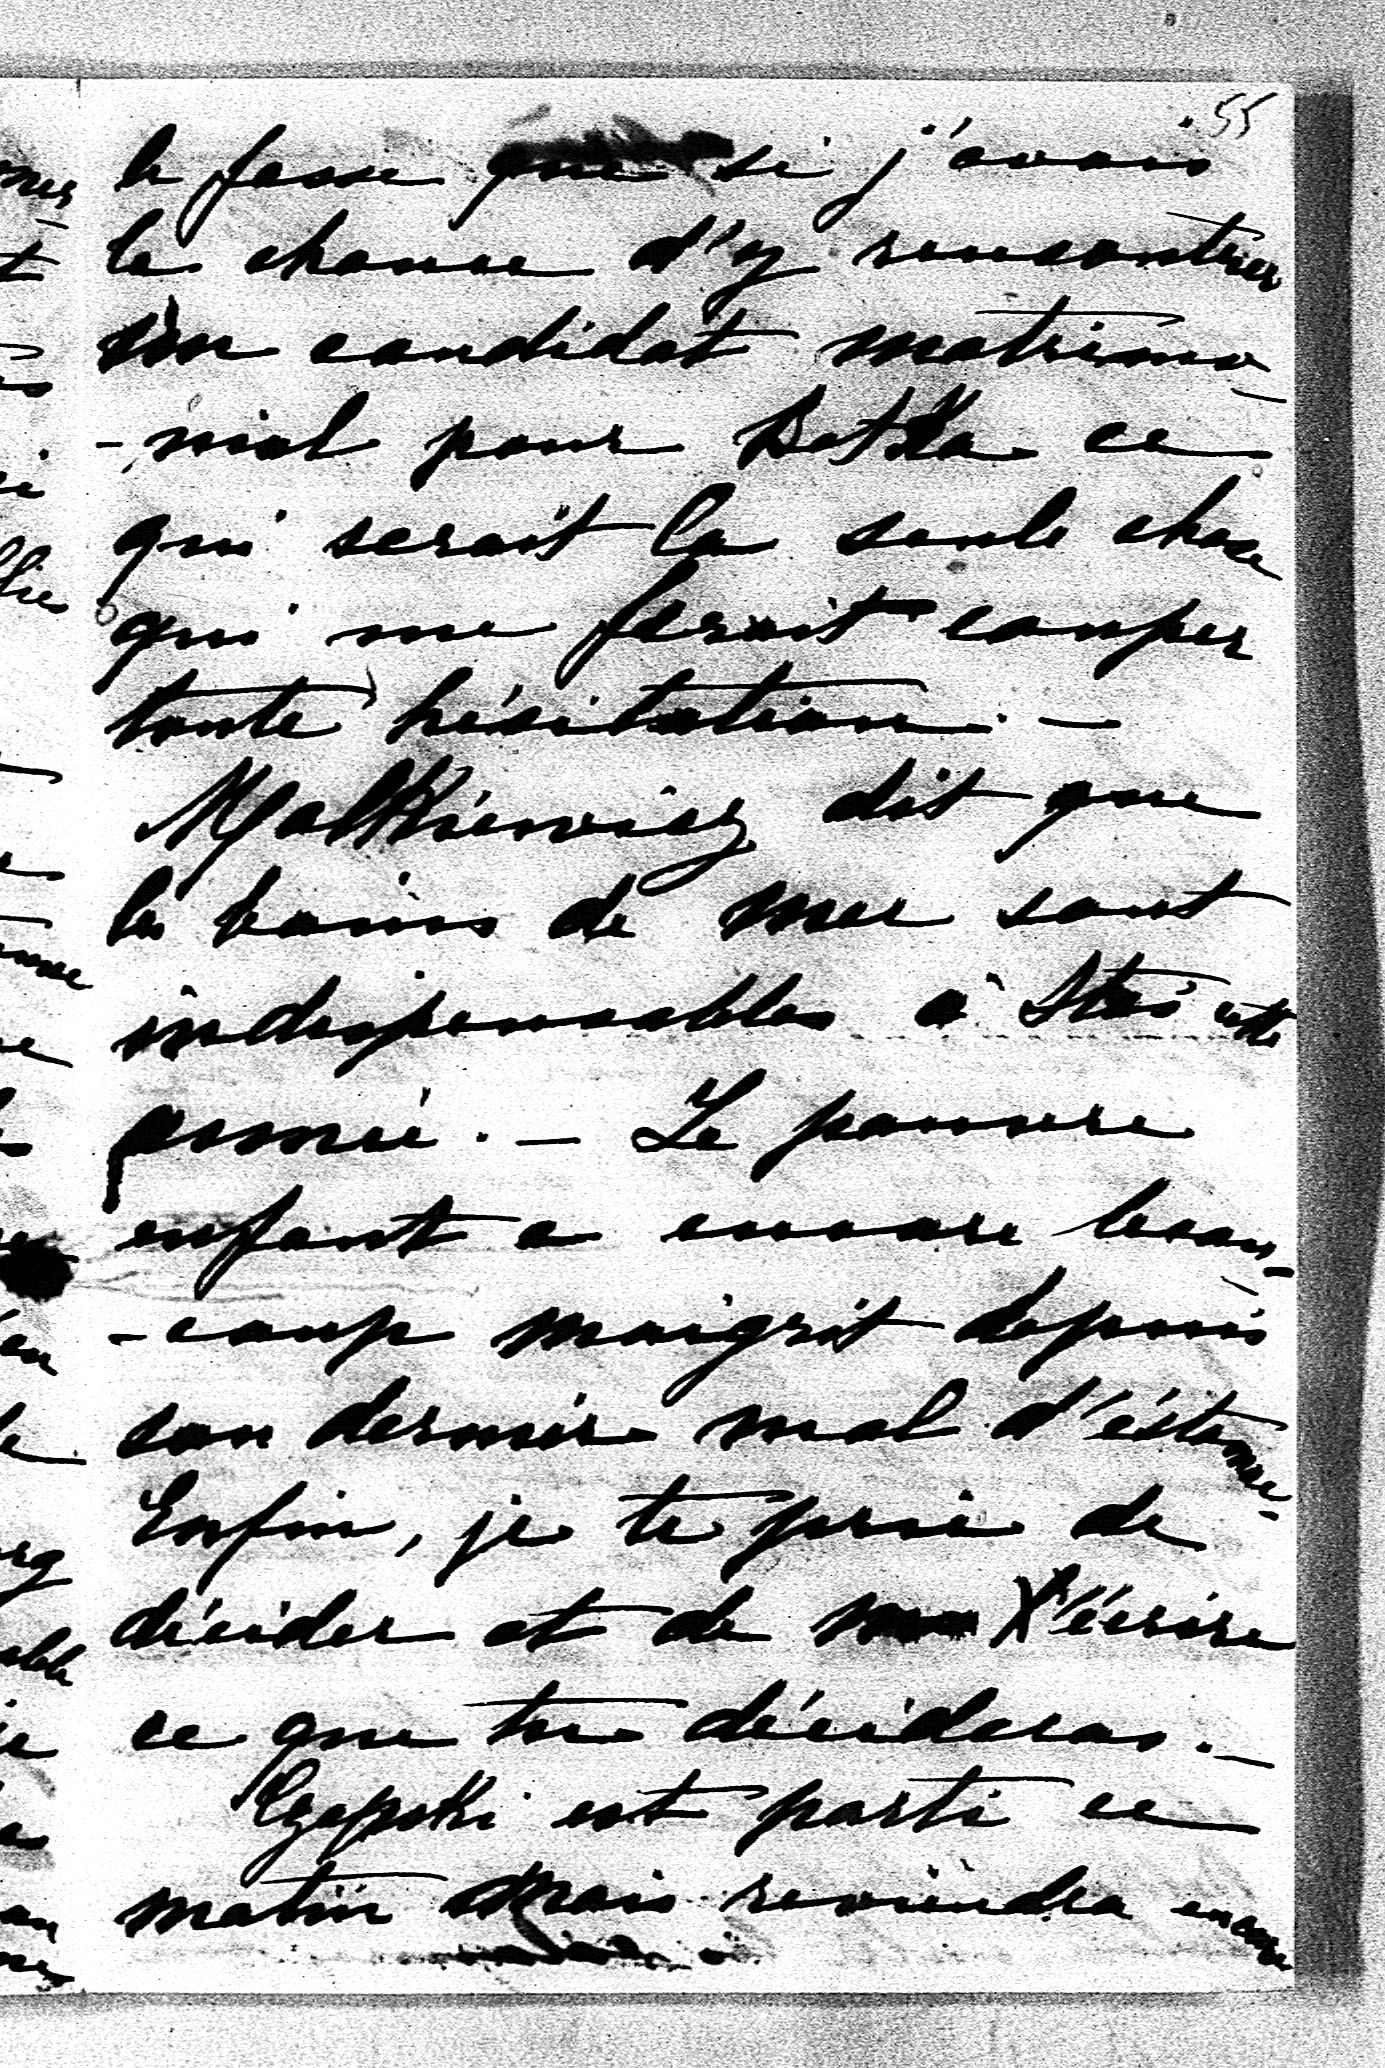 55
le fasse que si j'avais
la chance d'y rencontrer
un candidat matrimo
-nial pour Botka ce
qui serait la seule chose
qui me ferait couper
toute hésitation. —
Malkiewicz dit que
les bains de mer sont
indispensables à Stas cette
année. — Le pauvre
enfant a encore beau-
-coup maigrit depuis
son dernier mal d'éstomac
Enfin, je te prie de
décider et de l'écrire
ce que tu décideras. —
Czapski est parti ce
matin mais reviendra encore